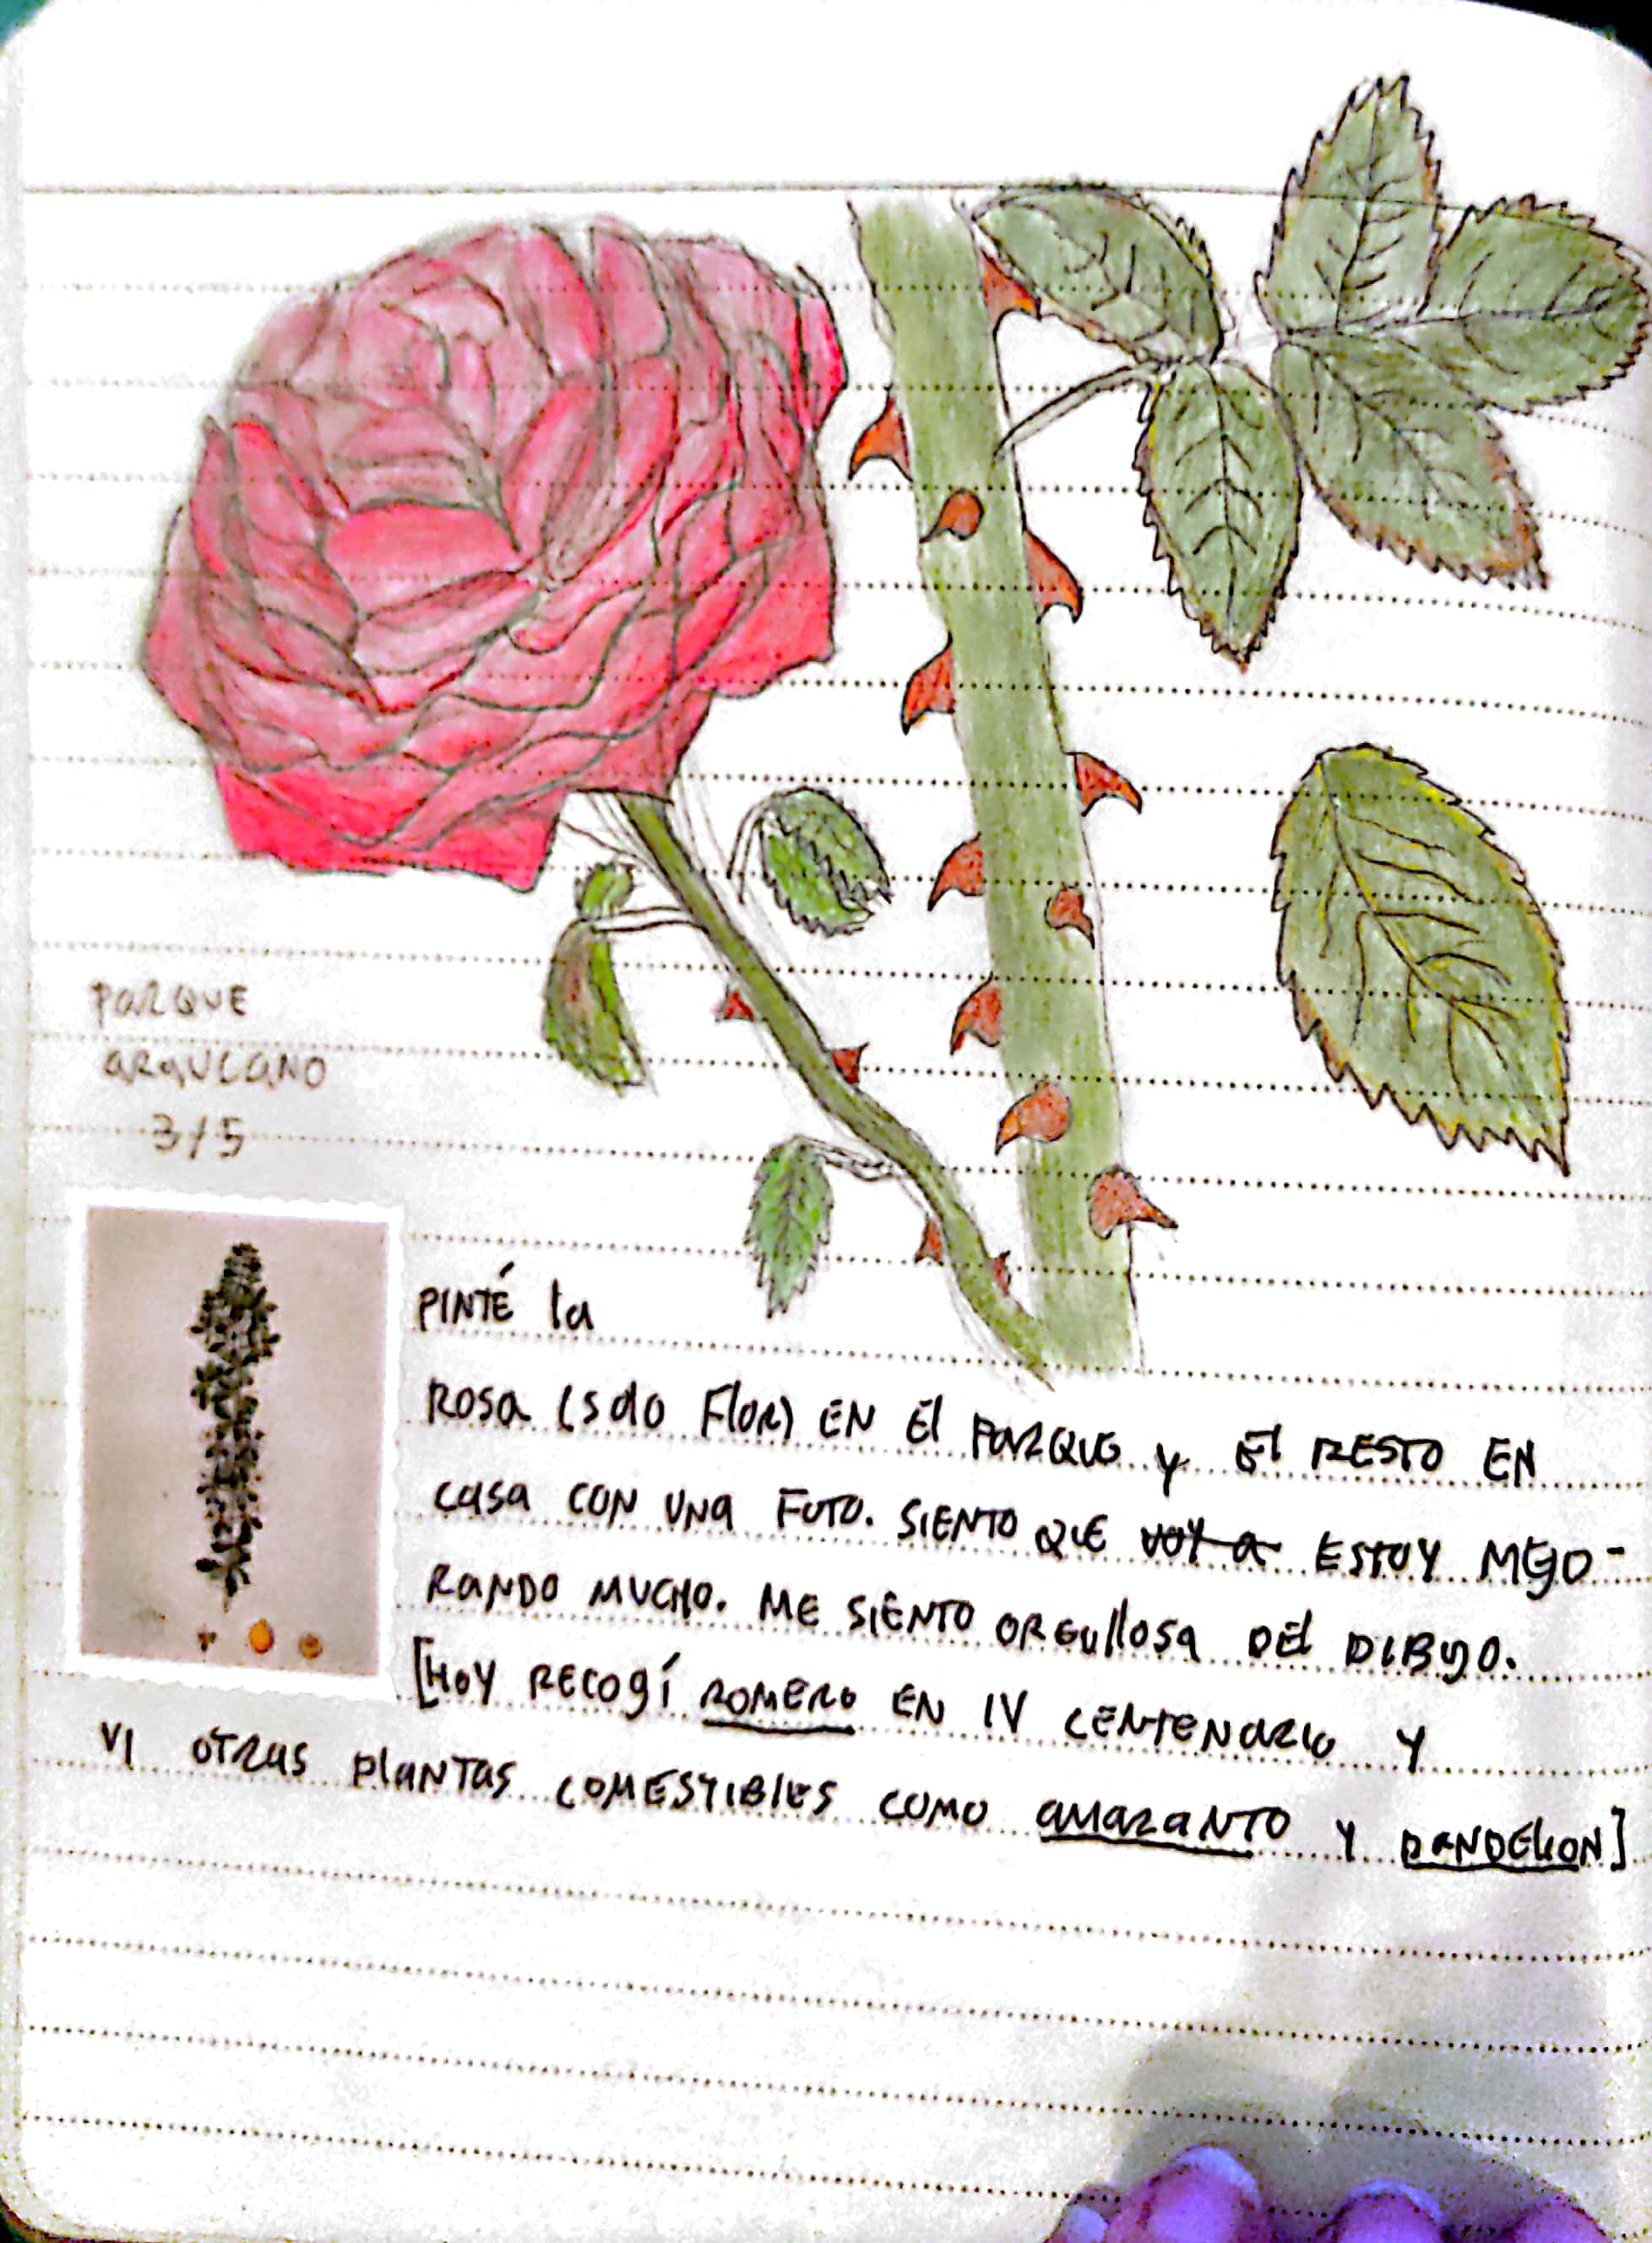 PARQUE
ARAUCANO
3/5
PINTÉ la
ROSA (solo Flor) EN El PARQUE y El RESTO EN
casa CON UNA FOTO. SIENTO QUE voy a ESTOY MEJO-
RANDO MUCHO. ME SIENTO ORGullosa DEl DIBUJO.
[HOY RECOGÍ ROMERO EN IV CENTENARIO Y
VI OTRAS PlANTAS COMESTIBlES COMO AMARANTO Y DANDELION]